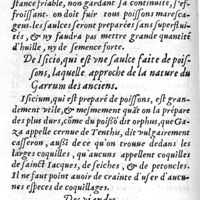 stance friable, non gardant sa continuité, s'ef-
froissant. on doit fuir tous poissons maresca-
gens. les saulces seront preparées sans superflui-
tés, & ny faudra pas mettre grande quantité
d'huille, ny de semence forte.
De Iscio, qui est vne saulce faite de pois-
sons, laquelle approche de la nature du
Garrum des anciens.
Isicium, qui est preparé de poissons, est gran-
dement vtile, & mesmement quãt on la prépare
des plus durs, cõme du poissõ dit orphus, que Ga-
za appelle cernue de Tenthis, dit vulgairement
casseron, aussi de ce qu'on trouue dedans les
larges coquilles, qu'aucuns appellent coquilles
de sainct Iacques, de seiches, & de petoncles.
Il ne faut point auoir de crainte d'vser d'aucu-
nes especes de coquillages.
Des viandes